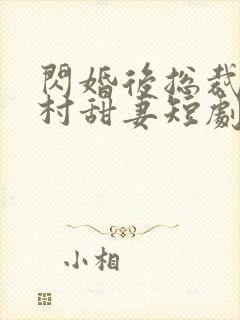 閃婚後総裁
村甜妻短劇
小相